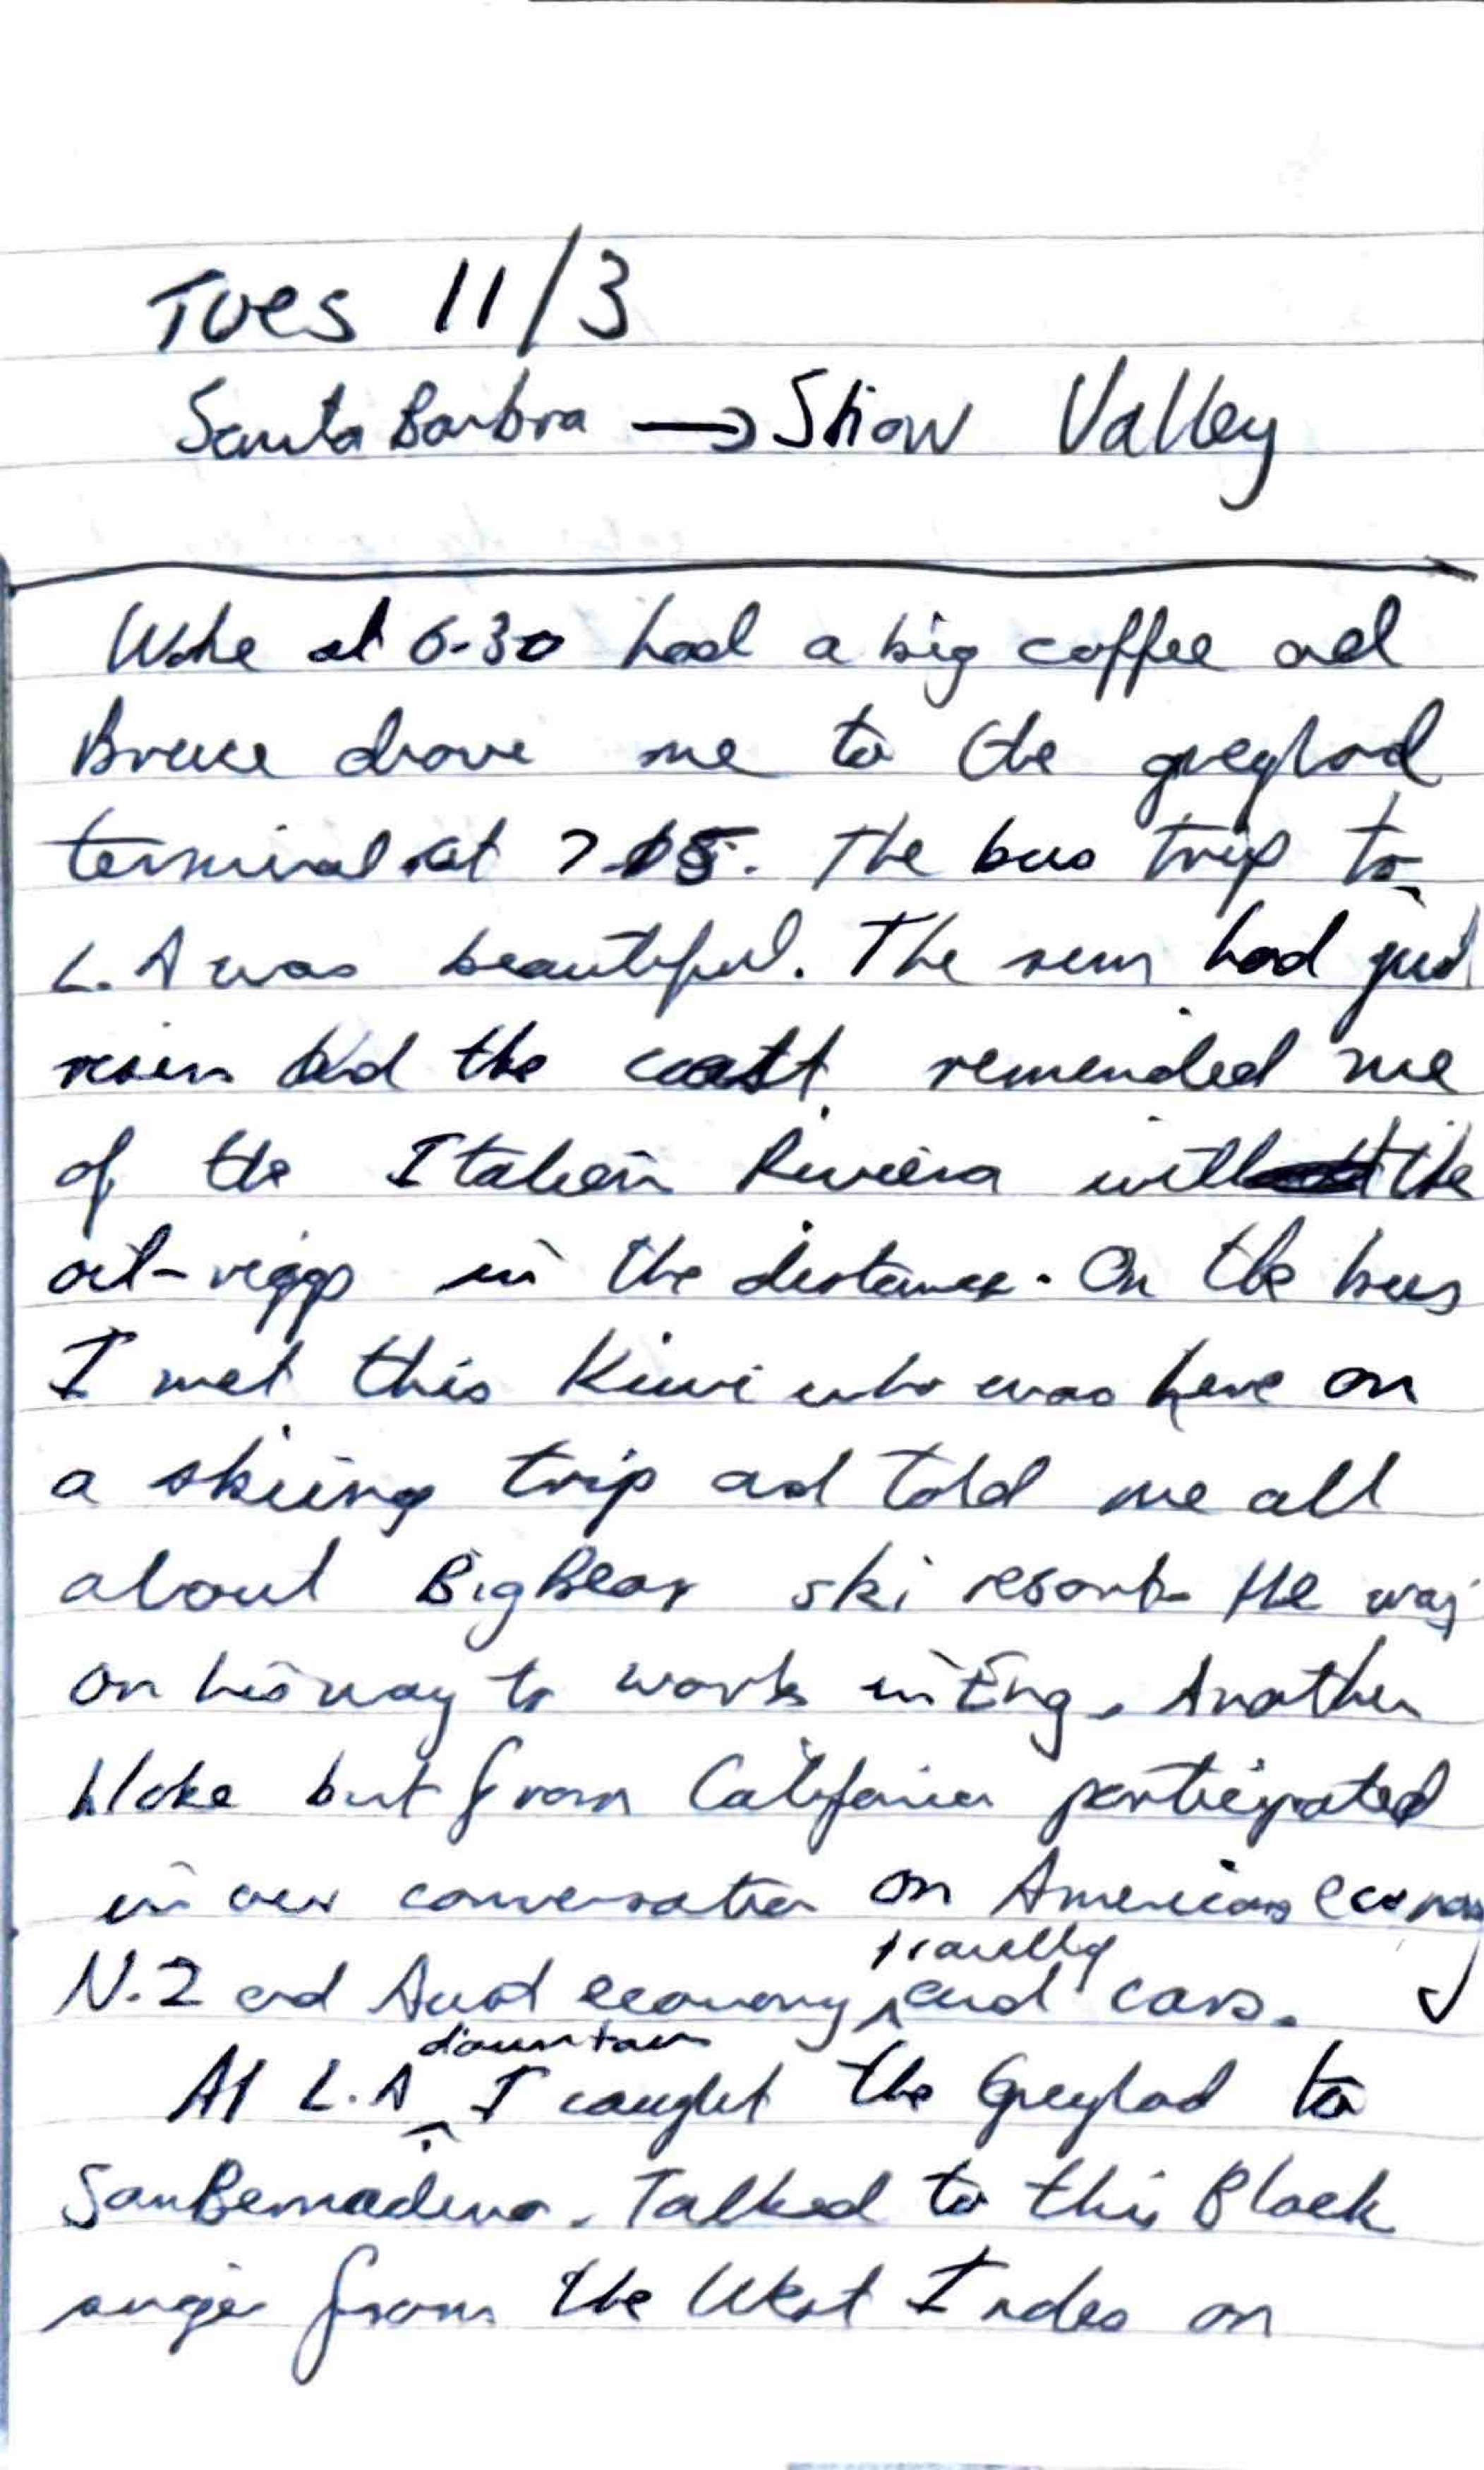 Tues 11/3
Santa Barbra → Snow Valley
Woke at 6-30 had a big coffee and
Bruce drove me to the greyhod
terminal at 7-05. The bus trip to
L.A was beautiful. The sun had just
risen and the coast reminded me
of the Italien Riviera with the
oil-riggs in the distance. On the bus
I met this Kiwi who was here on
a skiing trip ad told me all
about BigBear ski resort. He was
on his way to work in Eng. Another
bloke but from Califonia participated
in our conversation on American economy
N.Z and Aust economy, travelling and cars.
At L.A downtown I caught the Greyhod to
San Bernadino. Talked to this Black
from the West Indes on